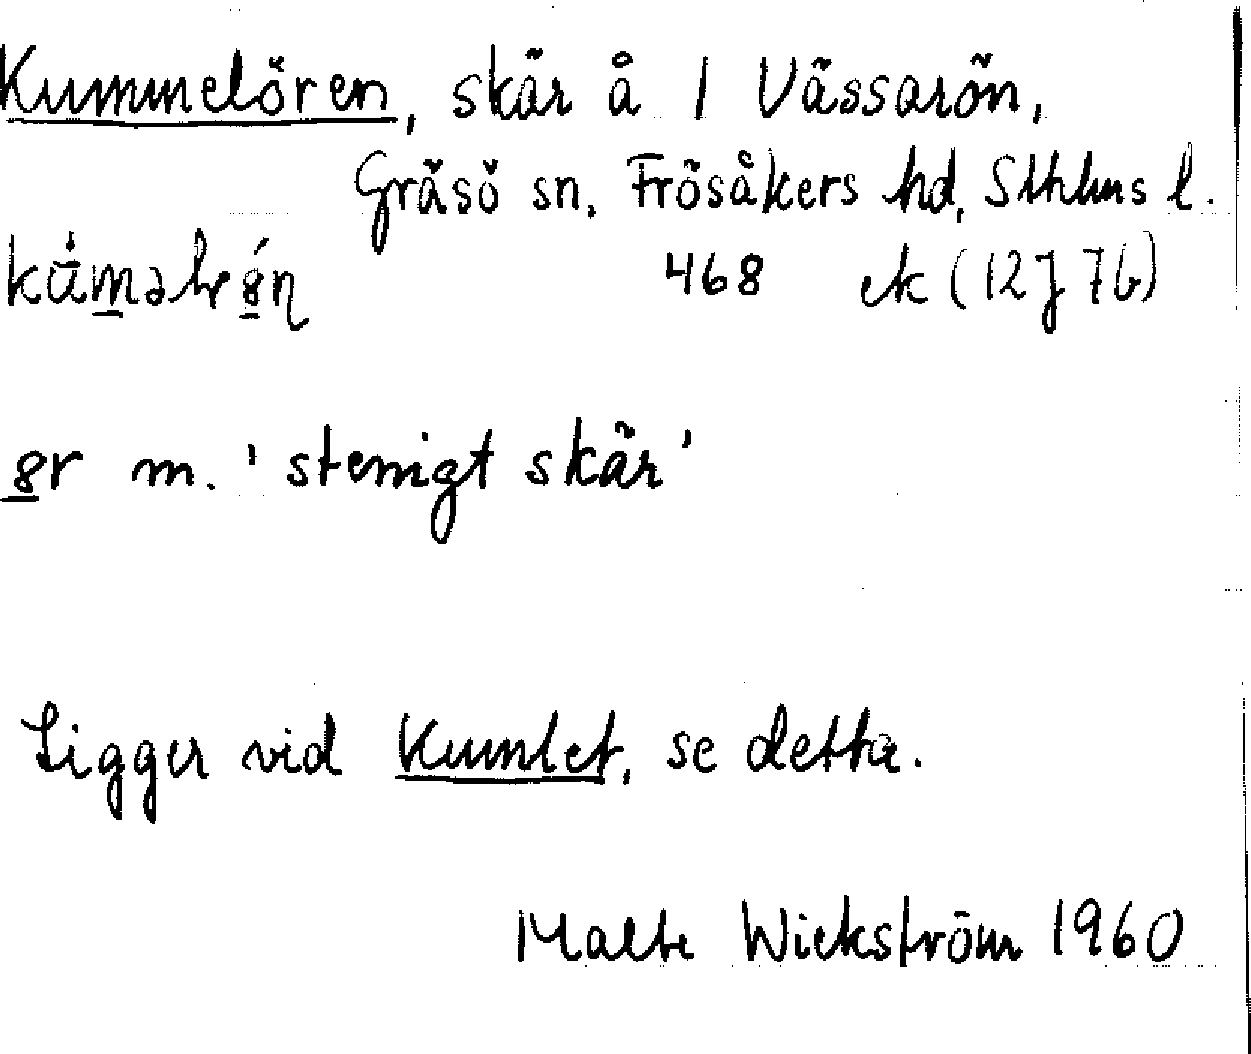 Kummelören, skär å 1 Vässarön,
Gräsö sn, Frösåkers hd, Sthlms l.
468 ek (12J7b)
m. 'stenigt skär'
Ligger vid Kumlet, se detta.
Malte Wickström 1960